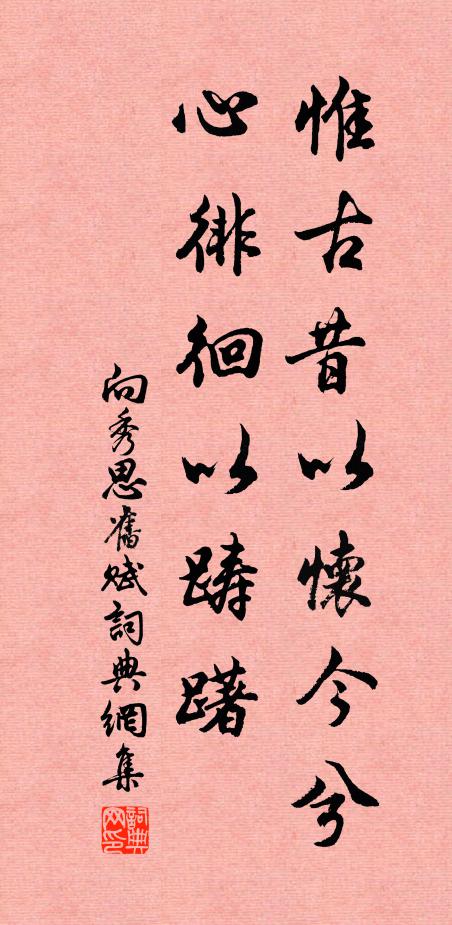 惟古昔以懷今兮
心徘徊以踌躇
向秀思舊赋詞典網集
詞典网印